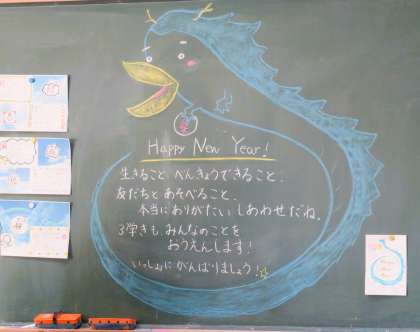 Happy New Year!
生きること、べんきょうできること、
友だちとあそべること、
本当にありがたいしあわせだね。
3学きも みんなのことを
おうえんします!
いっしょに がんばりましょう!